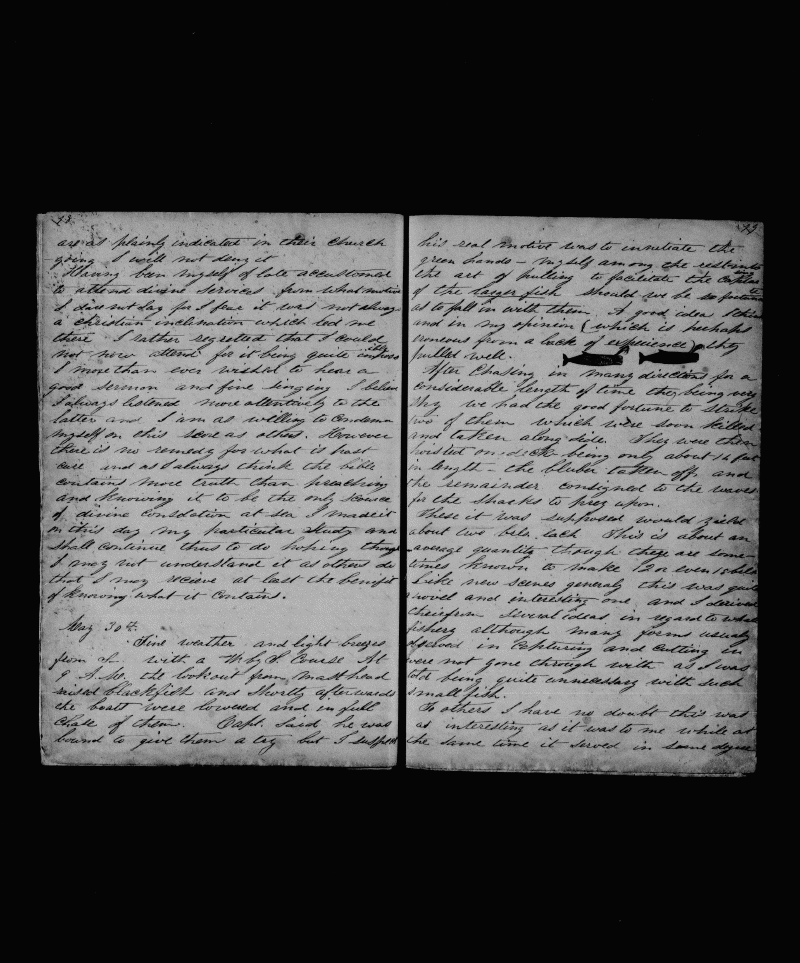 are as plainly indicated in their church
going I will not deny it
Having been myself of late accustomed
to attend divine services from what motive
I dare not say for I fear it was not always
a christian inclination which led me
there I rather regreted that I could
not now attend for it being quite
I more than ever wish'd to hear a
good sermon and fine singing I believe
I always listened more attentively to the
latter and I am as willing to condemn
myself on this score as others. However
there is no remedy for what is past
cure and as I always think the bible
contains more truth than preaching
and knowing it to be the only source
of divine consolation at sea I made it
on this day my particular study and
shall continue thus to do hoping though
I may not understand it as others do
that I may receive at last the benifit
of knowing what it contains.
May 30th.
Fine weather and light breezes
from S. with a W by S. Course At
9 A.M. the lookout from masthead
raised blackfish and shortly afterwards
the boats were lowered and in full
chase of them. Capt. said he was
bound to give them a try but I suppose
93
his real motive was to innitiate the
green hands - myself among the rest into
the art of pulling to facilitate the capture
of the larger fish should we be so fortunate
as to fall in with them. A good idea I think
and in my opinion (which is perhaps
eroneous from a lack of experience) they
pulled well.
After chasing in many directions for a
considerable length of time they being very
shy we had the good fortune to strike
two of them which were soon killed
and taken along side. They were then
hoisted on deck being only about 14 feet
in length - the bluber taken off and
the remainder consigned to the waves
for the sharks to prey upon.
These it was supposed would yield
about two bbls. each This is about an
average quantity though there are some-
times known to make 12 or even 15 bbls
Like new scenes generaly this was quite
novel and interesting one and I derived
therefrom several ideas in regard to whale
fishery although many forms usualy
observed in capturing and cutting in
were not gone through with as I was
told being quite unnecessary with such
small fish.
To others I have no doubt this was
as interesting as it was to me while at
the same time it served in some degree